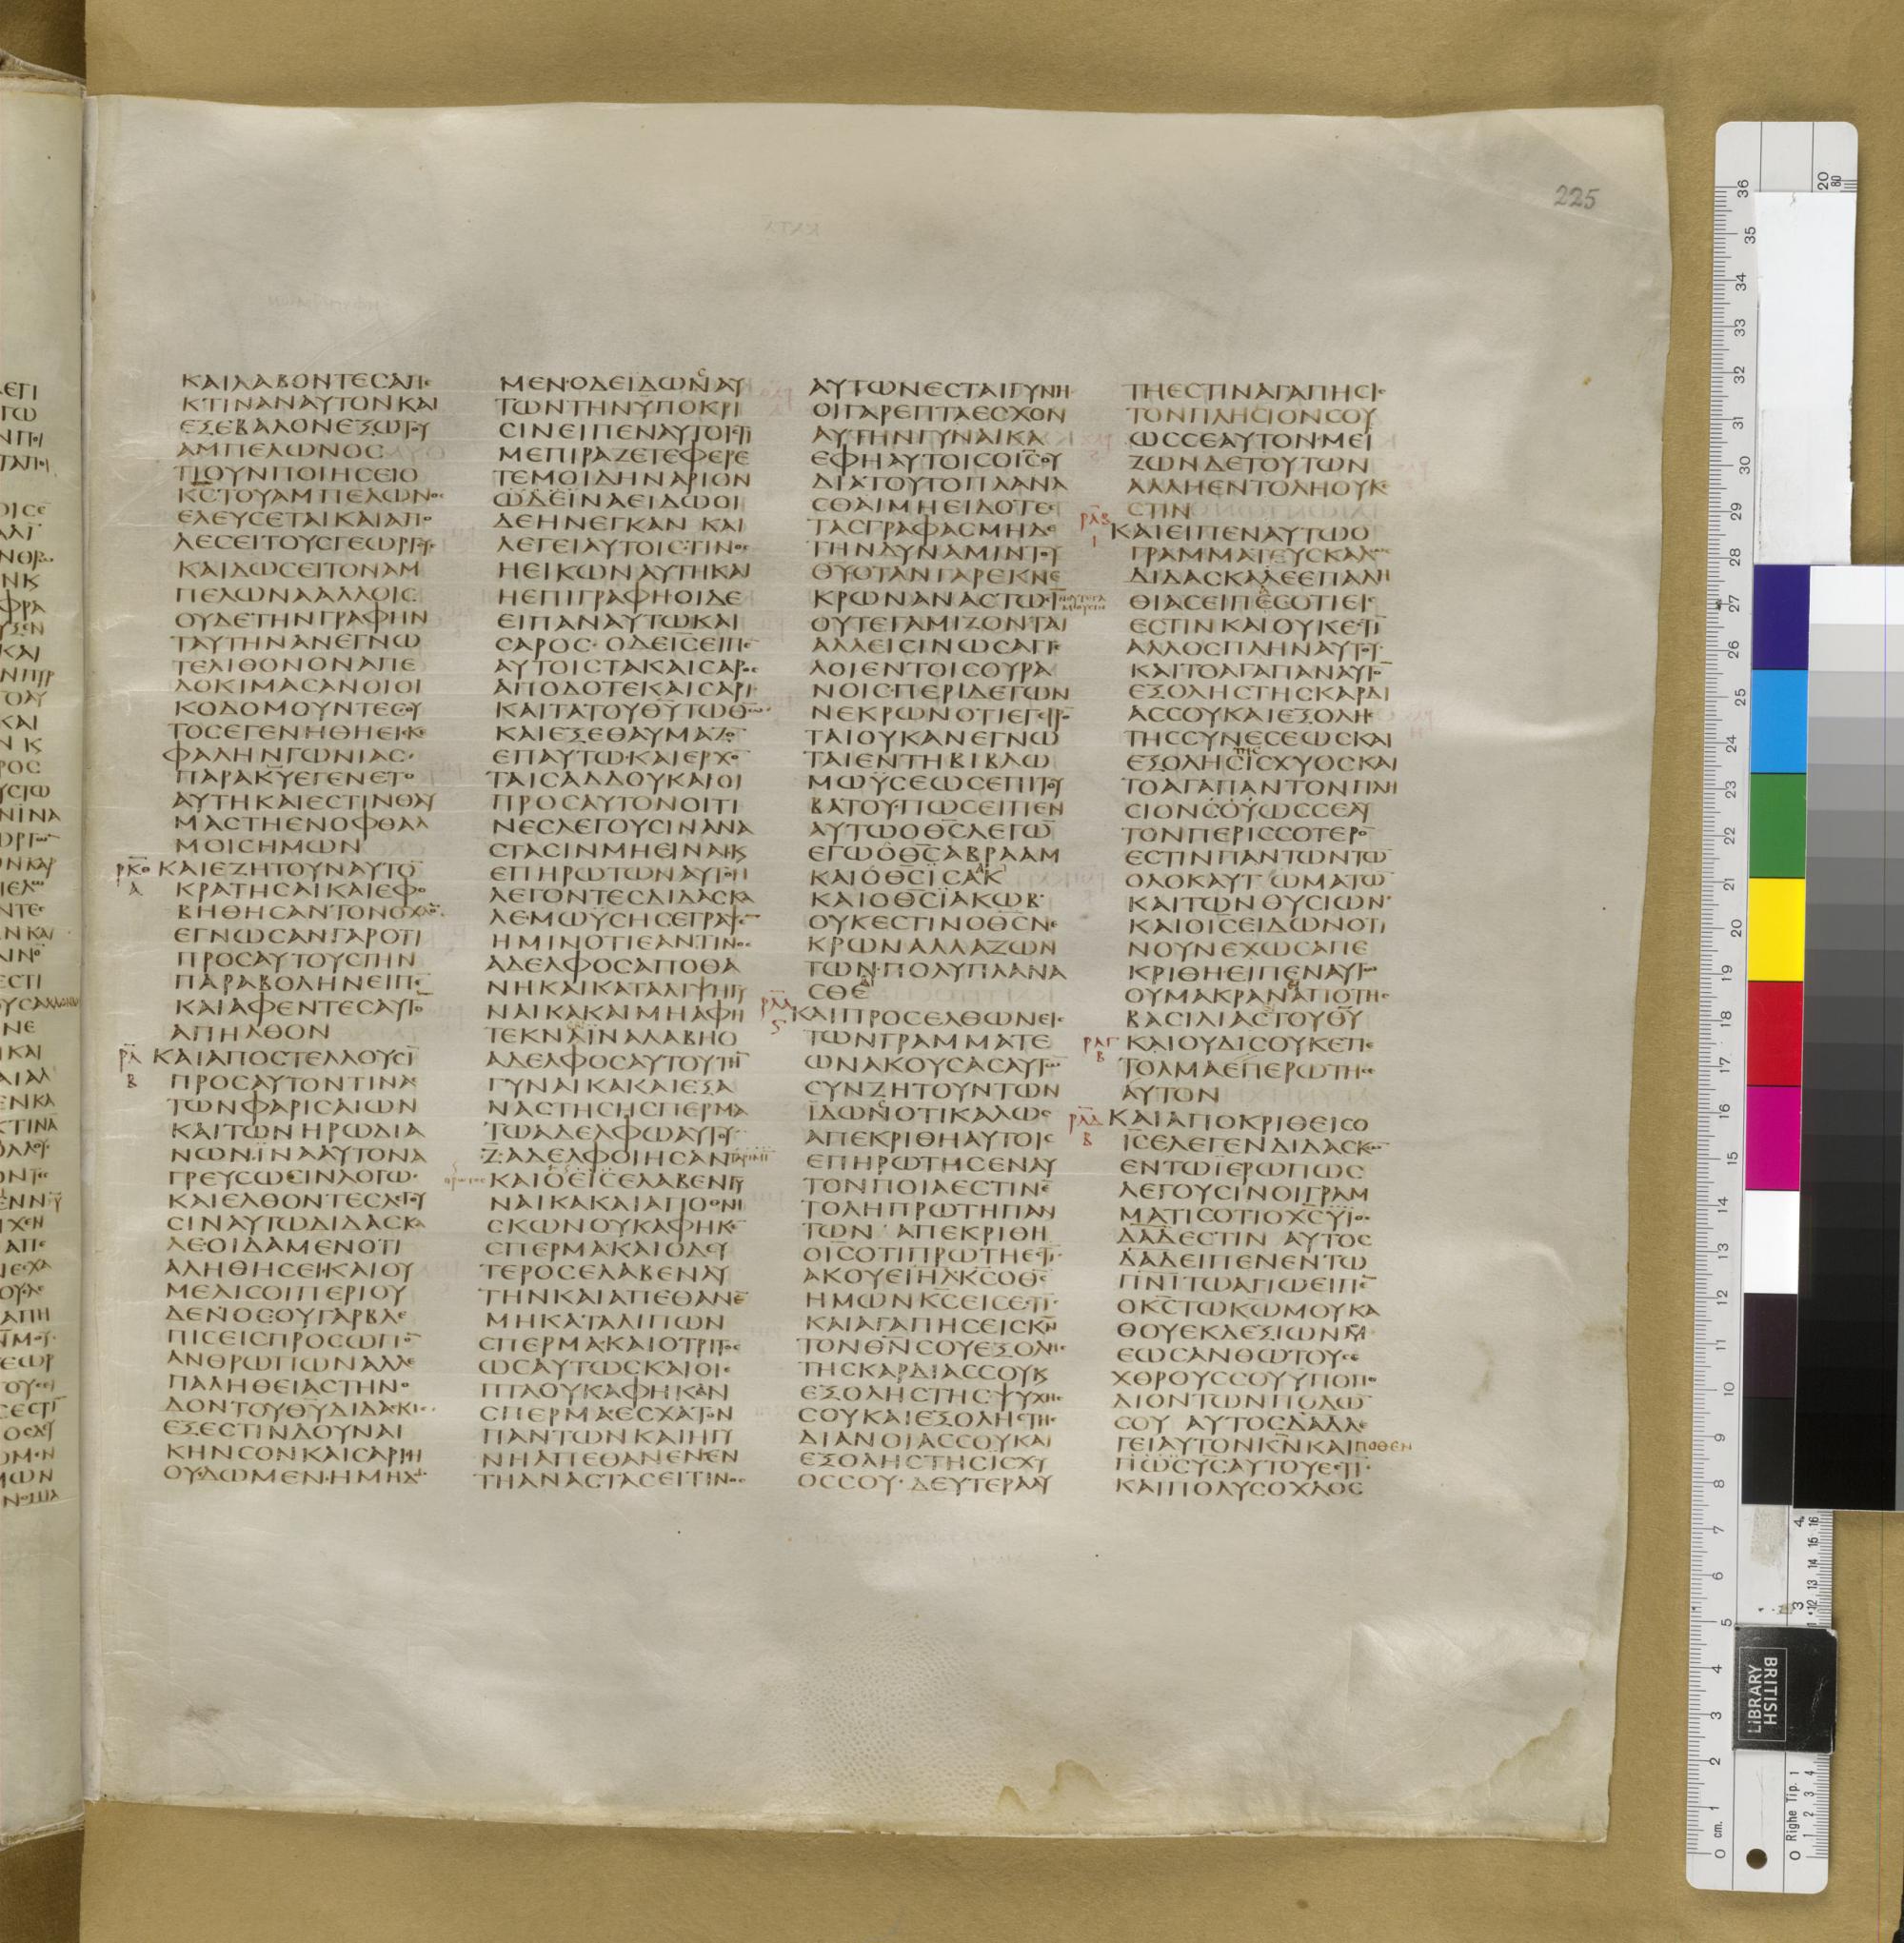 225
ΚΑΙΛΑΒΟΝΤΕΣΑΠΕ
ΚΤΙΝΑΝΑΥΤΟΝΚΑΙ
ΕΞΕΒΑΛΟΝΕΞΩΤΟΥ
ΑΜΠΕΛΩΝΟΣ
ΤΙΟΥΝΠΟΙΗΣΕΙΟ
ΚΣΤΟΥΑΜΠΕΛΩΝΟΣ
ΕΛΕΥΣΕΤΑΙΚΑΙΑΠΟ
ΛΕΣΕΙΤΟΥΣΓΕΩΡΓΟΥΣ
ΚΑΙΔΩΣΕΙΤΟΝΑΜ
ΠΕΛΩΝΑΑΛΛΟΙΣ
ΟΥΔΕΤΗΝΓΡΑΦΗΝ
ΤΑΥΤΗΝΑΝΕΓΝΩ
ΤΕΛΙΘΟΝΟΝΑΠΕ
ΔΟΚΙΜΑΣΑΝΟΙΟΙ
ΚΟΔΟΜΟΥΝΤΕΣΟΥ
ΤΟΣΕΓΕΝΗΘΗΕΙΣΚΕ
ΦΑΛΗΝΓΩΝΙΑΣ
ΠΑΡΑΚΥΕΓΕΝΕΤΟ
ΑΥΤΗΚΑΙΕΣΤΙΝΘΑΥ
ΜΑΣΤΗΕΝΟΦΘΑΛ
ΜΟΙΣΗΜΩΝ
ΚΑΙΕΖΗΤΟΥΝΑΥΤΟ
ΚΡΑΤΗΣΑΙΚΑΙΕΦΟ
ΒΗΘΗΣΑΝΤΟΝΟΧΛΟ
ΕΓΝΩΣΑΝΓΑΡΟΤΙ
ΠΡΟΣΑΥΤΟΥΣΤΗΝ
ΠΑΡΑΒΟΛΗΝΕΙΠΕ
ΚΑΙΑΦΕΝΤΕΣΑΥΤΟ
ΑΠΗΛΘΟΝ
ΚΑΙΑΠΟΣΤΕΛΛΟΥΣΙ
ΠΡΟΣΑΥΤΟΝΤΙΝΑΣ
ΤΩΝΦΑΡΙΣΑΙΩΝ
ΚΑΙΤΩΝΗΡΩΔΙΑ
ΝΩΝΪΝΑΑΥΤΟΝΑ
ΓΡΕΥΣΩΣΙΝΛΟΓΩ
ΚΑΙΕΛΘΟΝΤΕΣΛΕΓΟΥ
ΣΙΝΑΥΤΩΔΙΔΑΣΚΑ
ΛΕΟΙΔΑΜΕΝΟΤΙ
ΑΛΗΘΗΣΕΙΚΑΙΟΥ
ΜΕΛΙΣΟΙΠΕΡΙΟΥ
ΔΕΝΟΣΟΥΓΑΡΒΛΕ
ΠΙΣΕΙΣΠΡΟΣΩΠΟ
ΑΝΘΡΩΠΩΝΑΛΛΕ
ΠΑΛΗΘΕΙΑΣΤΗΝΟ
ΔΟΝΤΟΥΘΥΔΙΔΑΣΚΙΣ
ΕΞΕΣΤΙΝΔΟΥΝΑΙ
ΚΗΝΣΟΝΚΑΙΣΑΡΙΗ
ΟΥΔΩΜΕΝΗΜΗΔΩ
ΜΕΝΟΔΕΪΔΩΝΑΥ
ΤΩΝΤΗΝΥΠΟΚΡΙ
ΣΙΝΕΙΠΕΝΑΥΤΟΙΣΤΙ
ΜΕΠΙΡΑΖΕΤΕΦΕΡΕ
ΤΕΜΟΙΔΗΝΑΡΙΟΝ
ΩΔΕΪΝΑΕΙΔΩΟΙ
ΔΕΗΝΕΓΚΑΝ ΚΑΙ
ΛΕΓΕΙΑΥΤΟΙΣΤΙΝΟΣ
ΗΕΙΚΩΝΑΥΤΗΚΑΙ
ΗΕΠΙΓΡΑΦΗΟΙΔΕ
ΕΙΠΑΝΑΥΤΩΚΑΙ
ΣΑΡΟΣ ΟΔΕΙΣΕΙΠΕ
ΑΥΤΟΙΣΤΑΚΑΙΣΑΡΟΣ
ΑΠΟΔΟΤΕΚΑΙΣΑΡΙ
ΚΑΙΤΑΤΟΥΘΥΤΩΘΩ
ΚΑΙΕΞΕΘΑΥΜΑΖΟ
ΕΠΑΥΤΩΚΑΙΕΡΧΟ
ΤΑΙΣΑΔΔΟΥΚΑΙΟΙ
ΠΡΟΣΑΥΤΟΝΟΙΤΙ
ΝΕΣΛΕΓΟΥΣΙΝΑΝΑ
ΣΤΑΣΙΝΜΗΕΙΝΑΙΚ
ΕΠΗΡΩΤΩΝΑΥΤΟΝ
ΛΕΓΟΝΤΕΣΔΙΔΑΣΚΑ
ΛΕΜΩΥΣΗΣΕΓΡΑΨΕ
ΗΜΙΝΟΤΙΕΑΝΤΙΝΟΣ
ΑΔΕΛΦΟΣΑΠΟΘΑ
ΝΗΚΑΙΚΑΤΑΛΙΨΗΓΥ
ΝΑΙΚΑΚΑΙΜΗΑΦΗ
ΤΕΚΝΑΪΝΑΛΑΒΗΟ
ΑΔΕΛΦΟΣΑΥΤΟΥΤΗ
ΓΥΝΑΙΚΑΚΑΙΕΞΑ
ΝΑΣΤΗΣΗΣΠΕΡΜΑ
ΤΩΑΔΕΛΦΩΑΥΤΟΥ
Ζ ΑΔΕΛΦΟΙΗΣΑΝ
ΚΑΙΟΕΙΣΕΛΑΒΕΝΓΥ
ΝΑΙΚΑΚΑΙΑΠΟΘΝΗ
ΣΚΩΝΟΥΚΑΦΗΚΕ
ΣΠΕΡΜΑΚΑΙΟΔΕΥ
ΤΕΡΟΣΕΛΑΒΕΝΑΥ
ΤΗΝΚΑΙΑΠΕΘΑΝΕ
ΜΗΚΑΤΑΛΙΠΩΝ
ΣΠΕΡΜΑΚΑΙΟΤΡΙΤΟΣ
ΩΣΑΥΤΩΣΚΑΙΟΙΕ
ΠΤΑΟΥΚΑΦΗΚΑΝ
ΣΠΕΡΜΑΕΣΧΑΤΟΝ
ΠΑΝΤΩΝΚΑΙΗΓΥ
ΝΗΑΠΕΘΑΝΕΝΕΝ
ΤΗΑΝΑΣΤΑΣΕΙΤΙΝΟΣ
ΑΥΤΩΝΕΣΤΑΙΓΥΝΗ
ΟΙΓΑΡΕΠΤΑΕΣΧΟΝ
ΑΥΤΗΝΓΥΝΑΙΚΑ
ΕΦΗΑΥΤΟΙΣΟΙΣΟΥ
ΔΙΑΤΟΥΤΟΠΛΑΝΑ
ΣΘΑΙΜΗΕΙΔΟΤΕΣ
ΤΑΣΓΡΑΦΑΣΜΗΔΕ
ΤΗΝΔΥΝΑΜΙΝΤΟΥ
ΘΥΟΤΑΝΓΑΡΕΚΝΕ
ΚΡΩΝΑΝΑΣΤΩΣΙ
ΟΥΤΕΓΑΜΙΖΟΝΤΑΙ
ΑΛΛΕΙΣΙΝΩΣΑΓΓΕ
ΛΟΙΕΝΤΟΙΣΟΥΡΑ
ΝΟΙΣΠΕΡΙΔΕΤΩΝ
ΝΕΚΡΩΝΟΤΙΕΓΕΙΡΟ
ΤΑΙΟΥΚΑΝΕΓΝΩ
ΤΑΙΕΝΤΗΒΙΒΛΩ
ΜΩΫΣΕΩΣΕΠΙΤΟΥ
ΒΑΤΟΥΠΩΣΕΙΠΕΝ
ΑΥΤΩΟΘΣΛΕΓΩ
ΕΓΩΟΘΣΑΒΡΑΑΜ
ΚΑΙΟΘΣΪΣΑΚ
ΚΑΙΟΘΣΪΑΚΩΒ
ΟΥΚΕΣΤΙΝΟΘΣΝΕ
ΚΡΩΝΑΛΛΑΖΩΝ
ΤΩΝΠΟΛΥΠΛΑΝΑ
ΣΘΕ
ΚΑΙΠΡΟΣΕΛΘΩΝΕΙΣ
ΤΩΝΓΡΑΜΜΑΤΕ
ΩΝΑΚΟΥΣΑΣΑΥΤΩ
ΣΥΝΖΗΤΟΥΝΤΩΝ
ΪΔΩΝΟΤΙΚΑΛΩΣ
ΑΠΕΚΡΙΘΗΑΥΤΟΙΣ
ΕΠΗΡΩΤΗΣΕΝΑΥ
ΤΟΝΠΟΙΑΕΣΤΙΝΕ
ΤΟΛΗΠΡΩΤΗΠΑΝ
ΤΩΝ ΑΠΕΚΡΙΘΗ
ΟΙΣΟΤΙΠΡΩΤΗΕΣΤΙ
ΑΚΟΥΕΙΗΛΚΣΟΘΣ
ΗΜΩΝΚΣΕΙΣΕΣΤΙ
ΚΑΙΑΓΑΠΗΣΕΙΣΚΝ
ΤΟΝΘΝΣΟΥΕΞΟΛΗΣ
ΤΗΣΚΑΡΔΙΑΣΣΟΥΚ
ΕΞΟΛΗΣΤΗΣΨΥΧΗΣ
ΣΟΥΚΑΙΕΞΟΛΗΣΤΗΣ
ΔΙΑΝΟΙΑΣΣΟΥΚΑΙ
ΕΞΟΛΗΣΤΗΣΙΣΧΥ
ΟΣΣΟΥ ΔΕΥΤΕΡΑΑΥ
ΤΗΕΣΤΙΝΑΓΑΠΗΣΙΣ
ΤΟΝΠΛΗΣΙΟΝΣΟΥ
ΩΣΣΕΑΥΤΟΝΜΕΙ
ΖΩΝΔΕΤΟΥΤΩΝ
ΑΛΛΗΕΝΤΟΛΗΟΥΚΕ
ΣΤΙΝ
ΚΑΙΕΙΠΕΝΑΥΤΩΟ
ΓΡΑΜΜΑΤΕΥΣΚΑΛΩΣ
ΔΙΔΑΣΚΑΛΕΕΠΑΛΗ
ΘΙΑΣΕΙΠΕΣΟΤΙΕΙΣ
ΕΣΤΙΝΚΑΙΟΥΚΕΣΤΙ
ΑΛΛΟΣΠΛΗΝΑΥΤΟΥ
ΚΑΙΤΟΑΓΑΠΑΝΑΥΤΟ
ΕΞΟΛΗΣΤΗΣΚΑΡΔΙ
ΑΣΣΟΥΚΑΙΕΞΟΛΗΣ
ΤΗΣΣΥΝΕΣΕΩΣΚΑΙ
ΕΞΟΛΗΣΙΣΧΥΟΣΚΑΙ
ΤΟΑΓΑΠΑΝΤΟΝΠΛΗ
ΣΙΟΝΣΟΥΩΣΣΕΑΥ
ΤΟΝΠΕΡΙΣΣΟΤΕΡΟ
ΕΣΤΙΝΠΑΝΤΩΝΤΩ
ΟΛΟΚΑΥΤΩΜΑΤΩ
ΚΑΙΤΩΝΘΥΣΙΩΝ
ΚΑΙΟΙΣΕΙΔΩΝΟΤΙ
ΝΟΥΝΕΧΩΣΑΠΕ
ΚΡΙΘΗΕΙΠΕΝΑΥΤΩ
ΟΥΜΑΚΡΑΝΑΠΟΤΗΣ
ΒΑΣΙΛΙΑΣΤΟΥΘΥ
ΚΑΙΟΥΔΙΣΟΥΚΕΤΙ
ΤΟΛΜΑΕΠΕΡΩΤΗΣΑΙ
ΑΥΤΟΝ
ΚΑΙΑΠΟΚΡΙΘΕΙΣΟ
ΙΣΕΛΕΓΕΝΔΙΔΑΣΚΩ
ΕΝΤΩΪΕΡΩΠΩΣ
ΛΕΓΟΥΣΙΝΟΙΓΡΑΜ
ΜΑΤΙΣΟΤΙΟΧΣΥΪΟΣ
ΔΑΔΕΣΤΙΝ ΑΥΤΟΣ
ΔΑΔΕΙΠΕΝΕΝΤΩ
ΠΝΙΤΩΑΓΙΩΕΙΠΕ
ΟΚΣΤΩΚΩΜΟΥΚΑ
ΘΟΥΕΚΔΕΞΙΩΝΜΟΥ
ΕΩΣΑΝΘΩΤΟΥΣΕ
ΧΘΡΟΥΣΣΟΥΫΠΟΠΟ
ΔΙΟΝΤΩΝΠΟΔΩ
ΣΟΥ ΑΥΤΟΣΔΑΔΛΕ
ΓΕΙΑΥΤΟΝΚΝΚΑΙΠΟΘΕΝ
ΠΩΣΥΣΑΥΤΟΥΕΣΤΙ
ΚΑΙΠΟΛΥΣΟΧΛΟΣ
BRITISH
LIBRARY